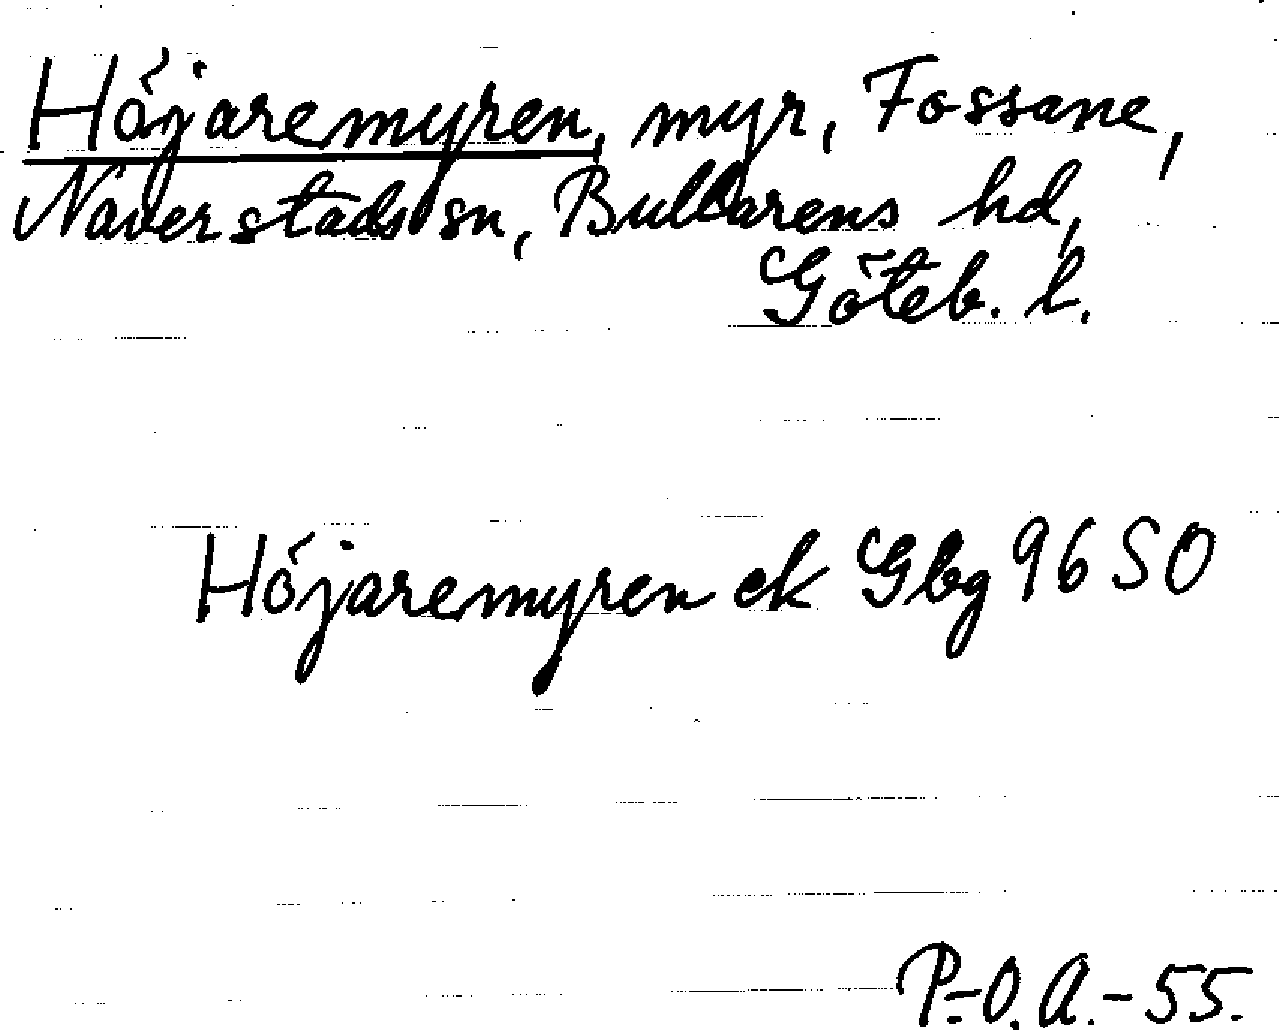 Höjaremyren, myr, Fossane,
Naverstads sn, Bullarens hd,
Göteb. l.
Höjaremyren ek Gbg 96 SO
P.-O. A. - 55.